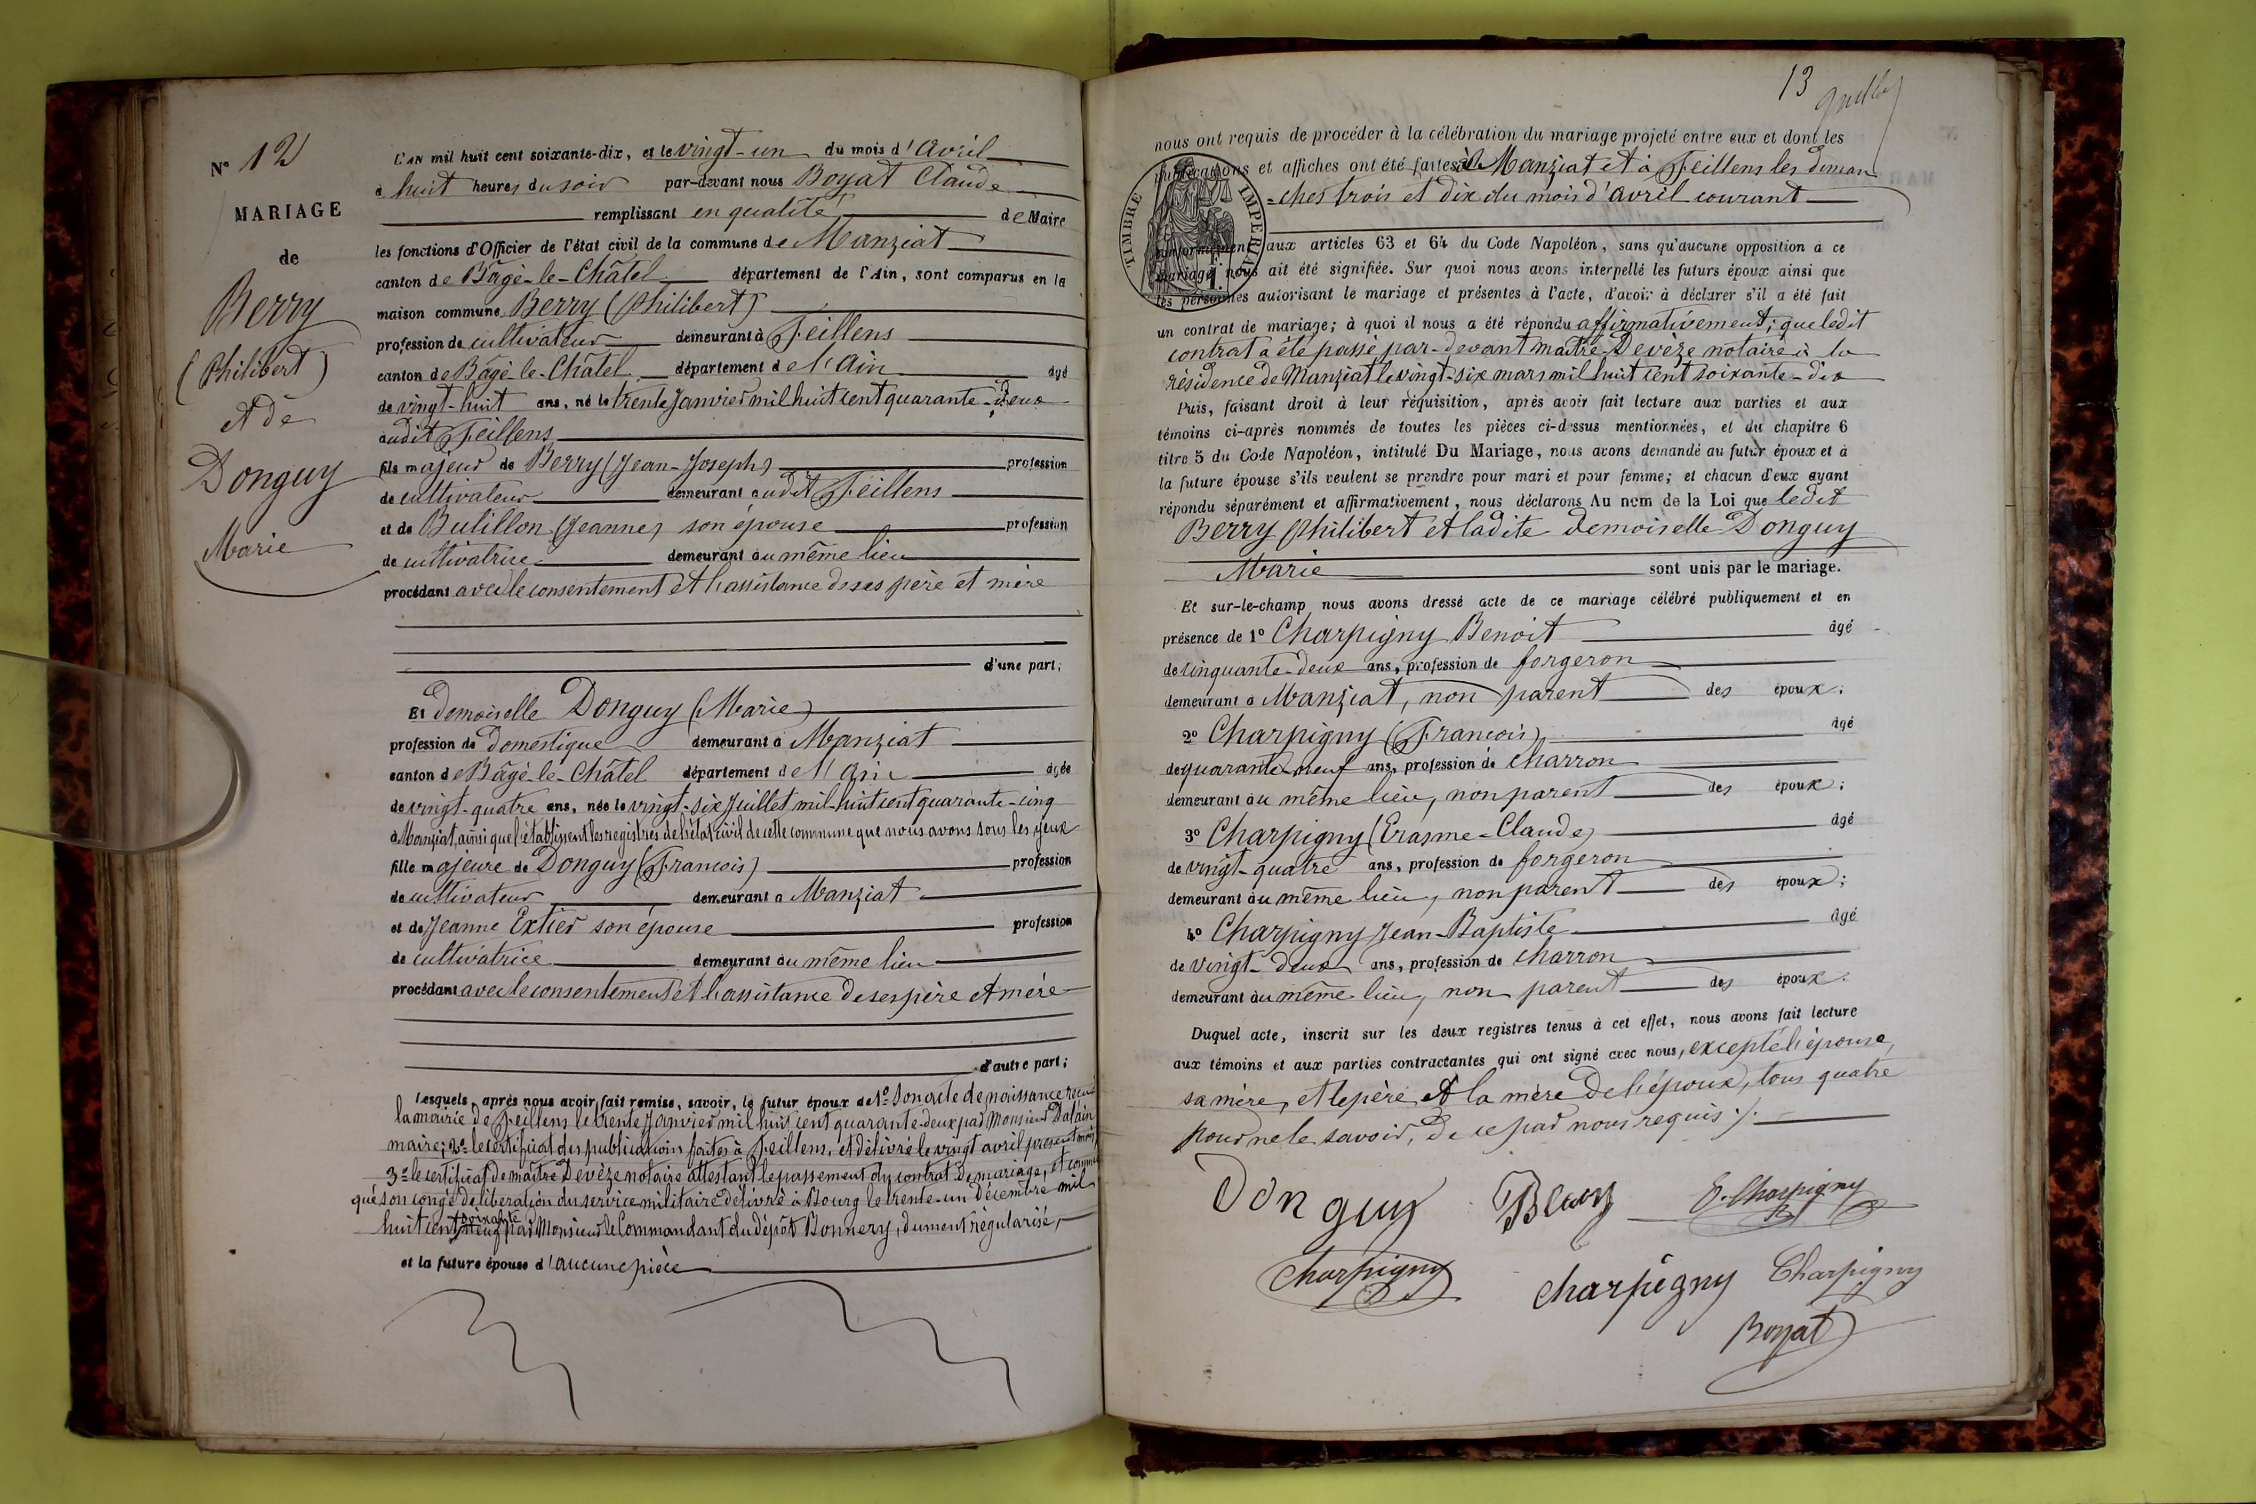 N° 12
MARIAGE
de
Berry
(Philibert)
et de
Donguy
Marie
L'AN mil huit cent soixante-dix, et le vingt-un du mois d'Avril
à huit heures du soir par-devant nous Boyat Claude
remplissant en qualité de Maire
les fonctions d'Officier de l'état civil de la commune de Manziat
canton de Bâgé-le-Châtel département de l'Ain, sont comparus en la
maison commune Berry (Philibert)
profession de cultivateur demeurant à Feillens
canton de Bâgé-le-Châtel département de l'Ain âgé
de vingt-huit ans, né le trente Janvier mil huit cent quarante-deux
audit Feillens
fils majeur de Berry (Jean-Joseph) profession
de cultivateur demeurant audit Feillens
et de Butillon (Jeanne) son épouse profession
de cultivatrice demeurant au même lieu
procédant avec le consentement et l'assistance de ses père et mère
d'une part;
Et demoiselle Donguy (Marie)
profession de domestique demeurant à Manziat
canton de Bâgé-le-Châtel département de l'Ain âgée
de vingt-quatre ans, née le vingt-six Juillet mil-huit cent quarante-cinq
à Manziat, ainsi que l'établissent les registres de l'état civil de cette commune que nous avons sous les yeux
fille majeure de Donguy (François) profession
de cultivateur demeurant à Manziat
et de Jeanne Extier son épouse profession
de cultivatrice demeurant au même lieu
procédant avec le consentement et l'assistance de ses père et mère
d'autre part;
Lesquels, après nous avoir fait remise, savoir, le futur époux de 1° Son acte de naissance reçu à
la mairie de Feillens le trente Janvier mil huit cent quarante-deux par Monsieur Dalain
maire; 2° le certificat des publications faites à Feillens, et délivré le vingt avril présent mois,
3° le certificat de maître Devèze notaire attestant le passement du contrat de mariage, et comme
que son congé de libération du service militaire délivré à Bourg le trente-un Décembre mil
huit cent soixante neuf par Monsieur le Commandant du dépôt Bonnery, dument régularisé,
et la future épouse d'aucune pièce
13
nous ont requis de procéder à la célébration du mariage projeté entre eux et dont les
publications et affiches ont été faites à Manziat et à Feillens les diman
-ches trois et dix du mois d'avril courant
TIMBRE IMPERIAL
1 F.
conformément aux articles 63 et 64 du Code Napoléon, sans qu'aucune opposition à ce
mariage nous ait été signifiée. Sur quoi nous avons interpellé les futurs époux ainsi que
les personnes autorisant le mariage et présentes à l'acte, d'avoir à déclarer s'il a été fait
un contrat de mariage; à quoi il nous a été répondu affirmativement; que ledit
contrat a été passé par-devant maître Devèze notaire à la
résidence de Manziat le vingt-six mars mil huit cent soixante-dix
Puis, faisant droit à leur réquisition, après avoir fait lecture aux parties et aux
témoins ci-après nommés de toutes les pièces ci-dessus mentionnées, et du chapitre 6
titre 5 du Code Napoléon, intitulé Du Mariage, nous avons demandé au futur époux et à
la future épouse s'ils veulent se prendre pour mari et pour femme; et chacun d'eux ayant
répondu séparément et affirmativement, nous déclarons Au nom de la Loi que ledit
Berry Philibert et ladite demoiselle Donguy
Marie sont unis par le mariage.
Et sur-le-champ nous avons dressé acte de ce mariage célébré publiquement et en
présence de 1° Charpigny Benoit âgé
de cinquante-deux ans, profession de forgeron
demeurant à Manziat, non parent des époux;
2° Charpigny (François) âgé
de quarante-neuf ans, profession de charron
demeurant au même lieu, non parent des époux;
3° Charpigny (Erasme-Claude) âgé
de vingt-quatre ans, profession de forgeron
demeurant au même lieu, non parent des époux;
4° Charpigny Jean-Baptiste âgé
de vingt-deux ans, profession de charron
demeurant au même lieu, non parent des époux.
Duquel acte, inscrit sur les deux registres tenus à cet effet, nous avons fait lecture
aux témoins et aux parties contractantes qui ont signé avec nous, excepté l'épouse,
sa mère, et le père et la mère de l'époux, tous quatre
pour ne le savoir, de ce par nous requis ./.
Donguy Berry E. Charpigny
Charpigny Charpigny Charpigny
Boyat